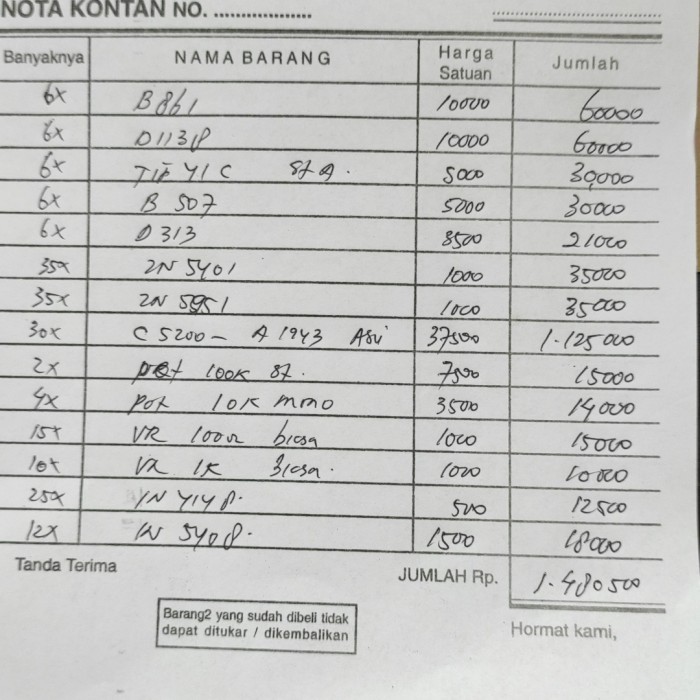 NOTA KONTAN NO. ...................
Banyaknya NAMA BARANG Harga Satuan Jumlah
6x B861 10000 60000
6x D1138 10000 60000
6x TIP 41 C ST A. 5000 30,000
6x B 507 5000 30000
6x D 313 3500 21000
35x 2N 5401 1000 35000
35x 2N 5551 1000 35000
30x C 5200 - A 1943 Asli 37500 1.125000
2x pot 100K ST. 7500 15000
4x pot 10K mono 3500 14000
15x VR 100Ω biasa 1000 15000
10x VR 1K Biasa. 1000 10000
25x IN 4148. 500 12500
12x IN 5408. 1500 18000
Tanda Terima JUMLAH Rp. 1.480500
Barang2 yang sudah dibeli tidak
dapat ditukar / dikembalikan
Hormat kami,